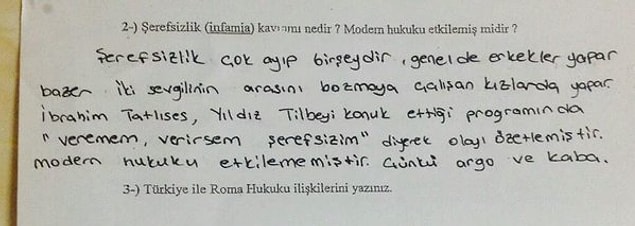 2-) Şerefsizlik (infamia) kavramı nedir ? Modern hukuku etkilemiş midir ?
Şerefsizlik çok ayıp birşeydir, genelde erkekler yapar
bazen iki sevgilinin arasını bozmaya çalışan kızlarda yapar.
İbrahim Tatlıses, Yıldız Tilbeyi konuk ettiği programında
"veremem, verirsem şerefsizim" diyerek olayı özetlemiştir.
modern hukuku etkilememiştir. Çünkü argo ve kaba.
3-) Türkiye ile Roma Hukuku ilişkilerini yazınız.